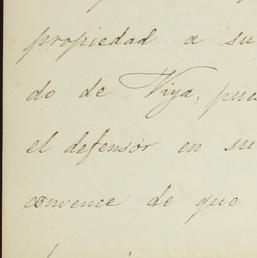 propiedad a su
do de Viya, pues
el defensor en su
convence de que